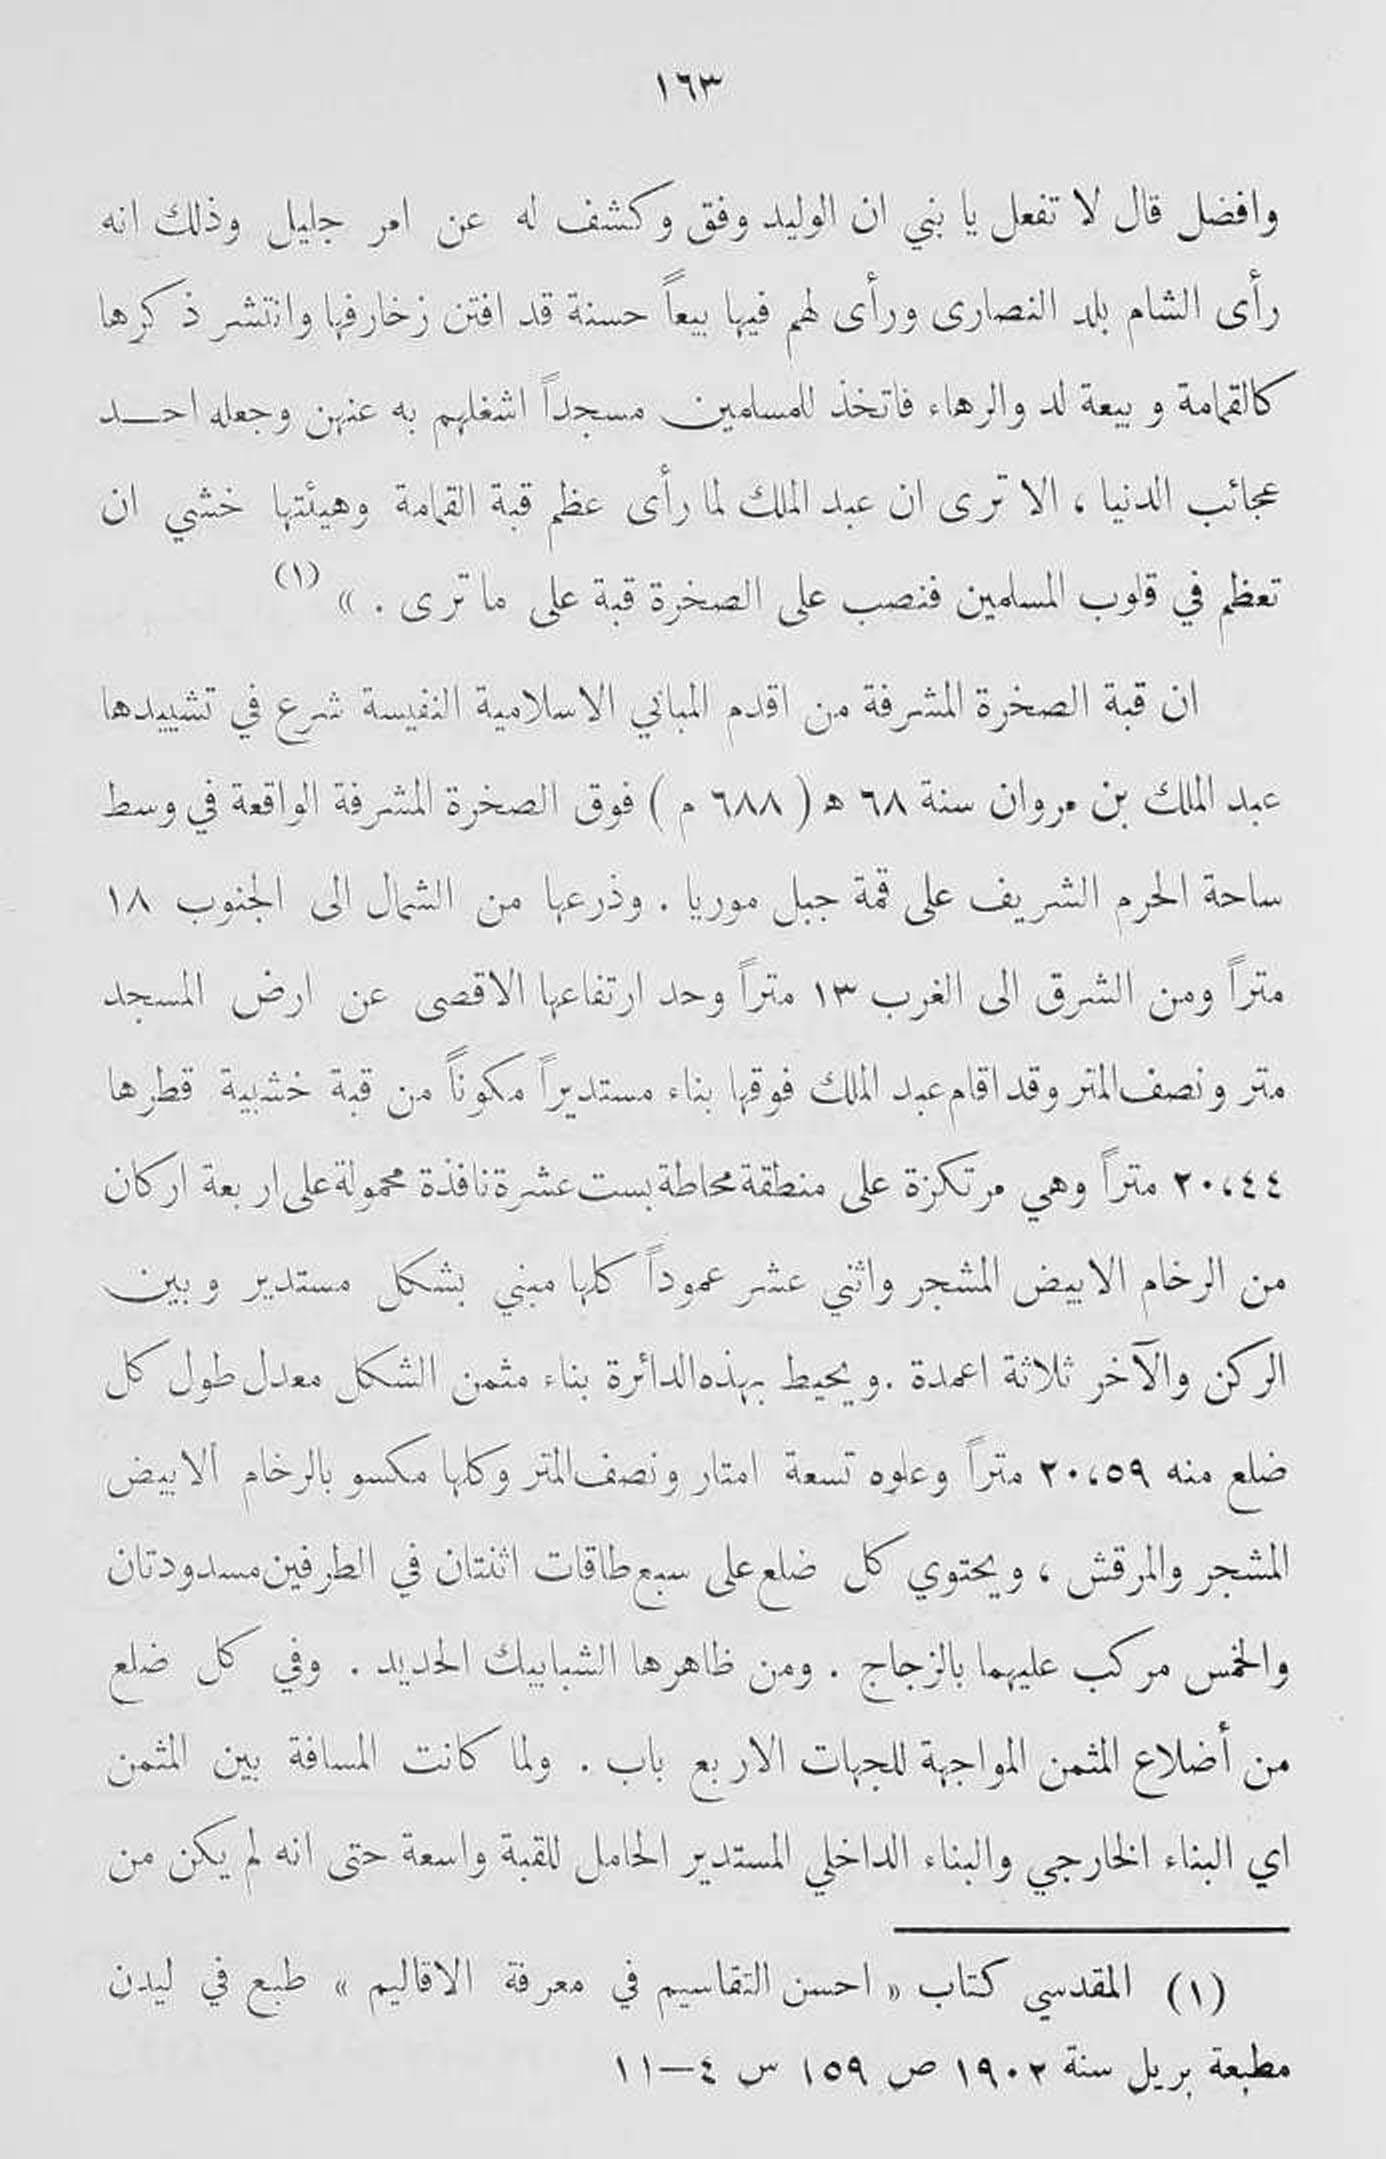 ١٦٣
وافضل قال لا تفعل يا بني ان الوليد وفق وكشف له عن امر جليل وذلك انه
رأى الشام بلد النصارى ورأى لهم فيها بيعاً حسنة قد افتن زخارفها وانتشر ذكرها
كالقمامة وبيعة لد والرهاء فاتخذ للمسلمين مسجداً اشغلهم به عنهن وجعله احد
عجائب الدنيا ، الا ترى ان عبد الملك لما رأى عظم قبة القمامة وهيئتها خشي ان
تعظم في قلوب المسلمين فنصب على الصخرة قبة على ما ترى . » (١)
ان قبة الصخرة المشرفة من اقدم المباني الاسلامية النفيسة شرع في تشييدها
عبد الملك بن مروان سنة ٦٨ ه ( ٦٨٨ م ) فوق الصخرة المشرفة الواقعة في وسط
ساحة الحرم الشريف على قمة جبل موريا . وذرعها من الشمال الى الجنوب ١٨
متراً ومن الشرق الى الغرب ١٣ متراً وحد ارتفاعها الاقصى عن ارض المسجد
متر ونصف المتر وقد اقام عبد الملك فوقها بناء مستديراً مكوناً من قبة خشبية قطرها
٢٠،٤٤ متراً وهي مرتكزة على منطقة محاطة بست عشرة نافذة محمولة على اربعة اركان
من الرخام الابيض المشجر واثني عشر عموداً كلها مبني بشكل مستدير وبين
الركن والآخر ثلاثة اعمدة . ويحيط بهذه الدائرة بناء مثمن الشكل معدل طول كل
ضلع منه ٢٠،٥٩ متراً وعلوه تسعة امتار ونصف المتر وكلها مكسو بالرخام الابيض
المشجر والمرقش ، ويحتوي كل ضلع على سبع طاقات اثنتان في الطرفين مسدودتان
والخمس مركب عليهما بالزجاج . ومن ظاهرها الشبابيك الحديد . وفي كل ضلع
من أضلاع المثمن المواجهة للجهات الاربع باب . ولما كانت المسافة بين المثمن
اي البناء الخارجي والبناء الداخلي المستدير الحامل للقبة واسعة حتى انه لم يكن من
(١) المقدسي كتاب « احسن التقاسيم في معرفة الاقاليم » طبع في ليدن
مطبعة بريل سنة ١٩٠٢ ص ١٥٩ س ٤–١١